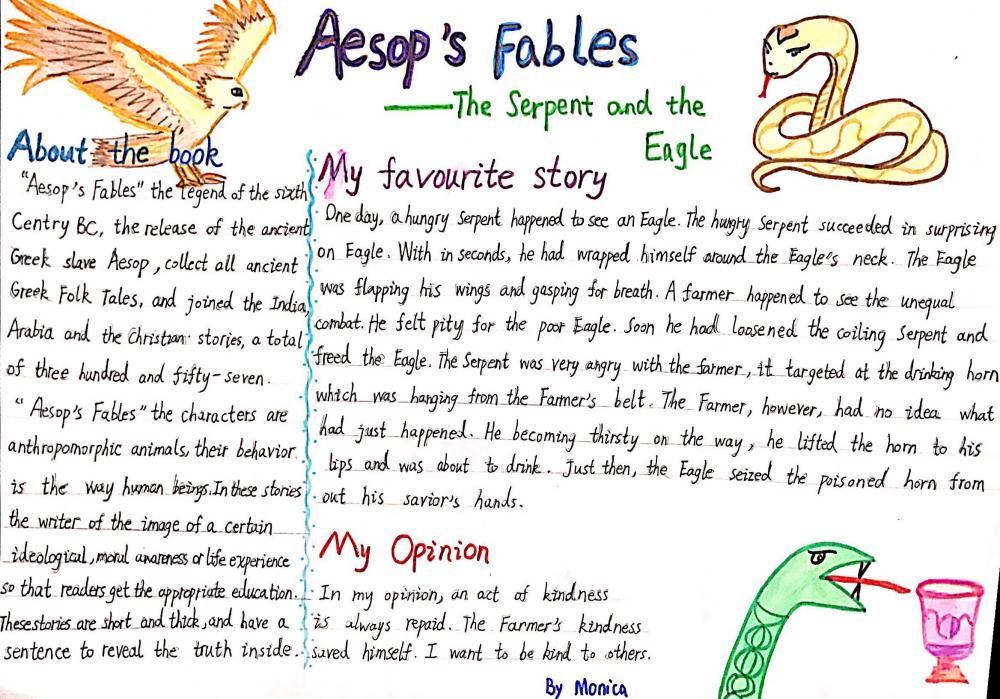 Aesop's Fables
——The Serpent and the
Eagle
About the book
"Aesop's Fables" the legend of the sixth
Centry BC, the release of the ancient
Greek slave Aesop, collect all ancient
Greek Folk Tales, and joined the India,
Arabia and the Christian stories, a total
of three hundred and fifty-seven.
"Aesop's Fables" the characters are
anthropomorphic animals, their behavior
is the way human beings. In these stories
the writer of the image of a certain
ideological, moral awareness or life experience
so that readers get the appropriate education.
These stories are short and thick, and have a
sentence to reveal the truth inside.
My favourite story
One day, a hungry Serpent happened to see an Eagle. The hungry Serpent succeeded in surprising
on Eagle. With in seconds, he had wrapped himself around the Eagle's neck. The Eagle
was flapping his wings and gasping for breath. A farmer happened to see the unequal
combat. He felt pity for the poor Eagle. Soon he had loosened the coiling Serpent and
freed the Eagle. The Serpent was very angry with the farmer, it targeted at the drinking horn
which was hanging from the Farmer's belt. The Farmer, however, had no idea what
had just happened. He becoming thirsty on the way, he lifted the horn to his
lips and was about to drink. Just then, the Eagle seized the poisoned horn from
out his savior's hands.
My Opinion
In my opinion, an act of kindness
is always repaid. The Farmer's kindness
saved himself. I want to be kind to others.
By Monica